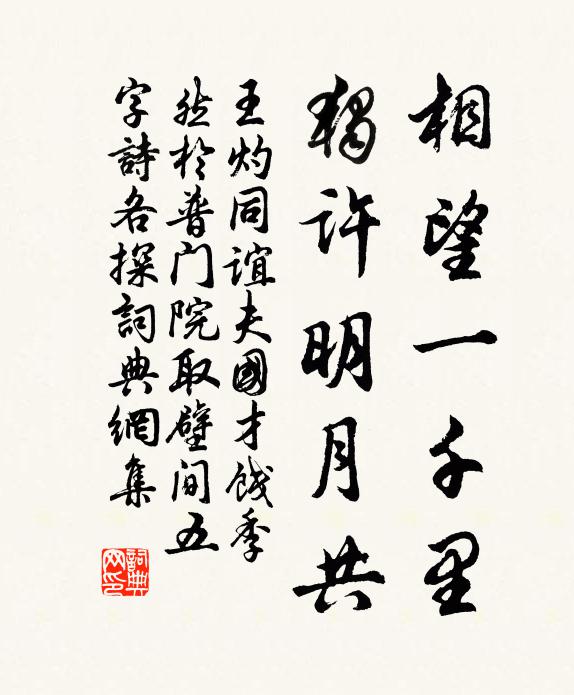 相望一千里
獨許明月共
王灼同誼夫國才餞季
然於普门院取壁间五
字詩各探詞典網集
詞典網印